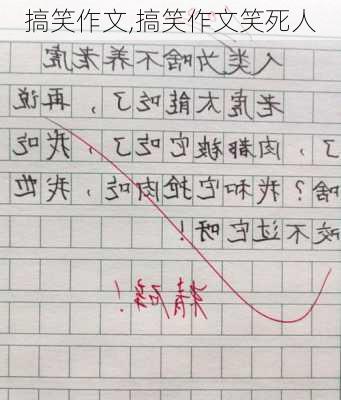 搞笑作文,搞笑作文笑死人
人类为啥不养老虎
老虎太能吃了，再说
了，肉都被它吃了，我吃
啥？我和它抢肉吃，我也
咬不过它呀！